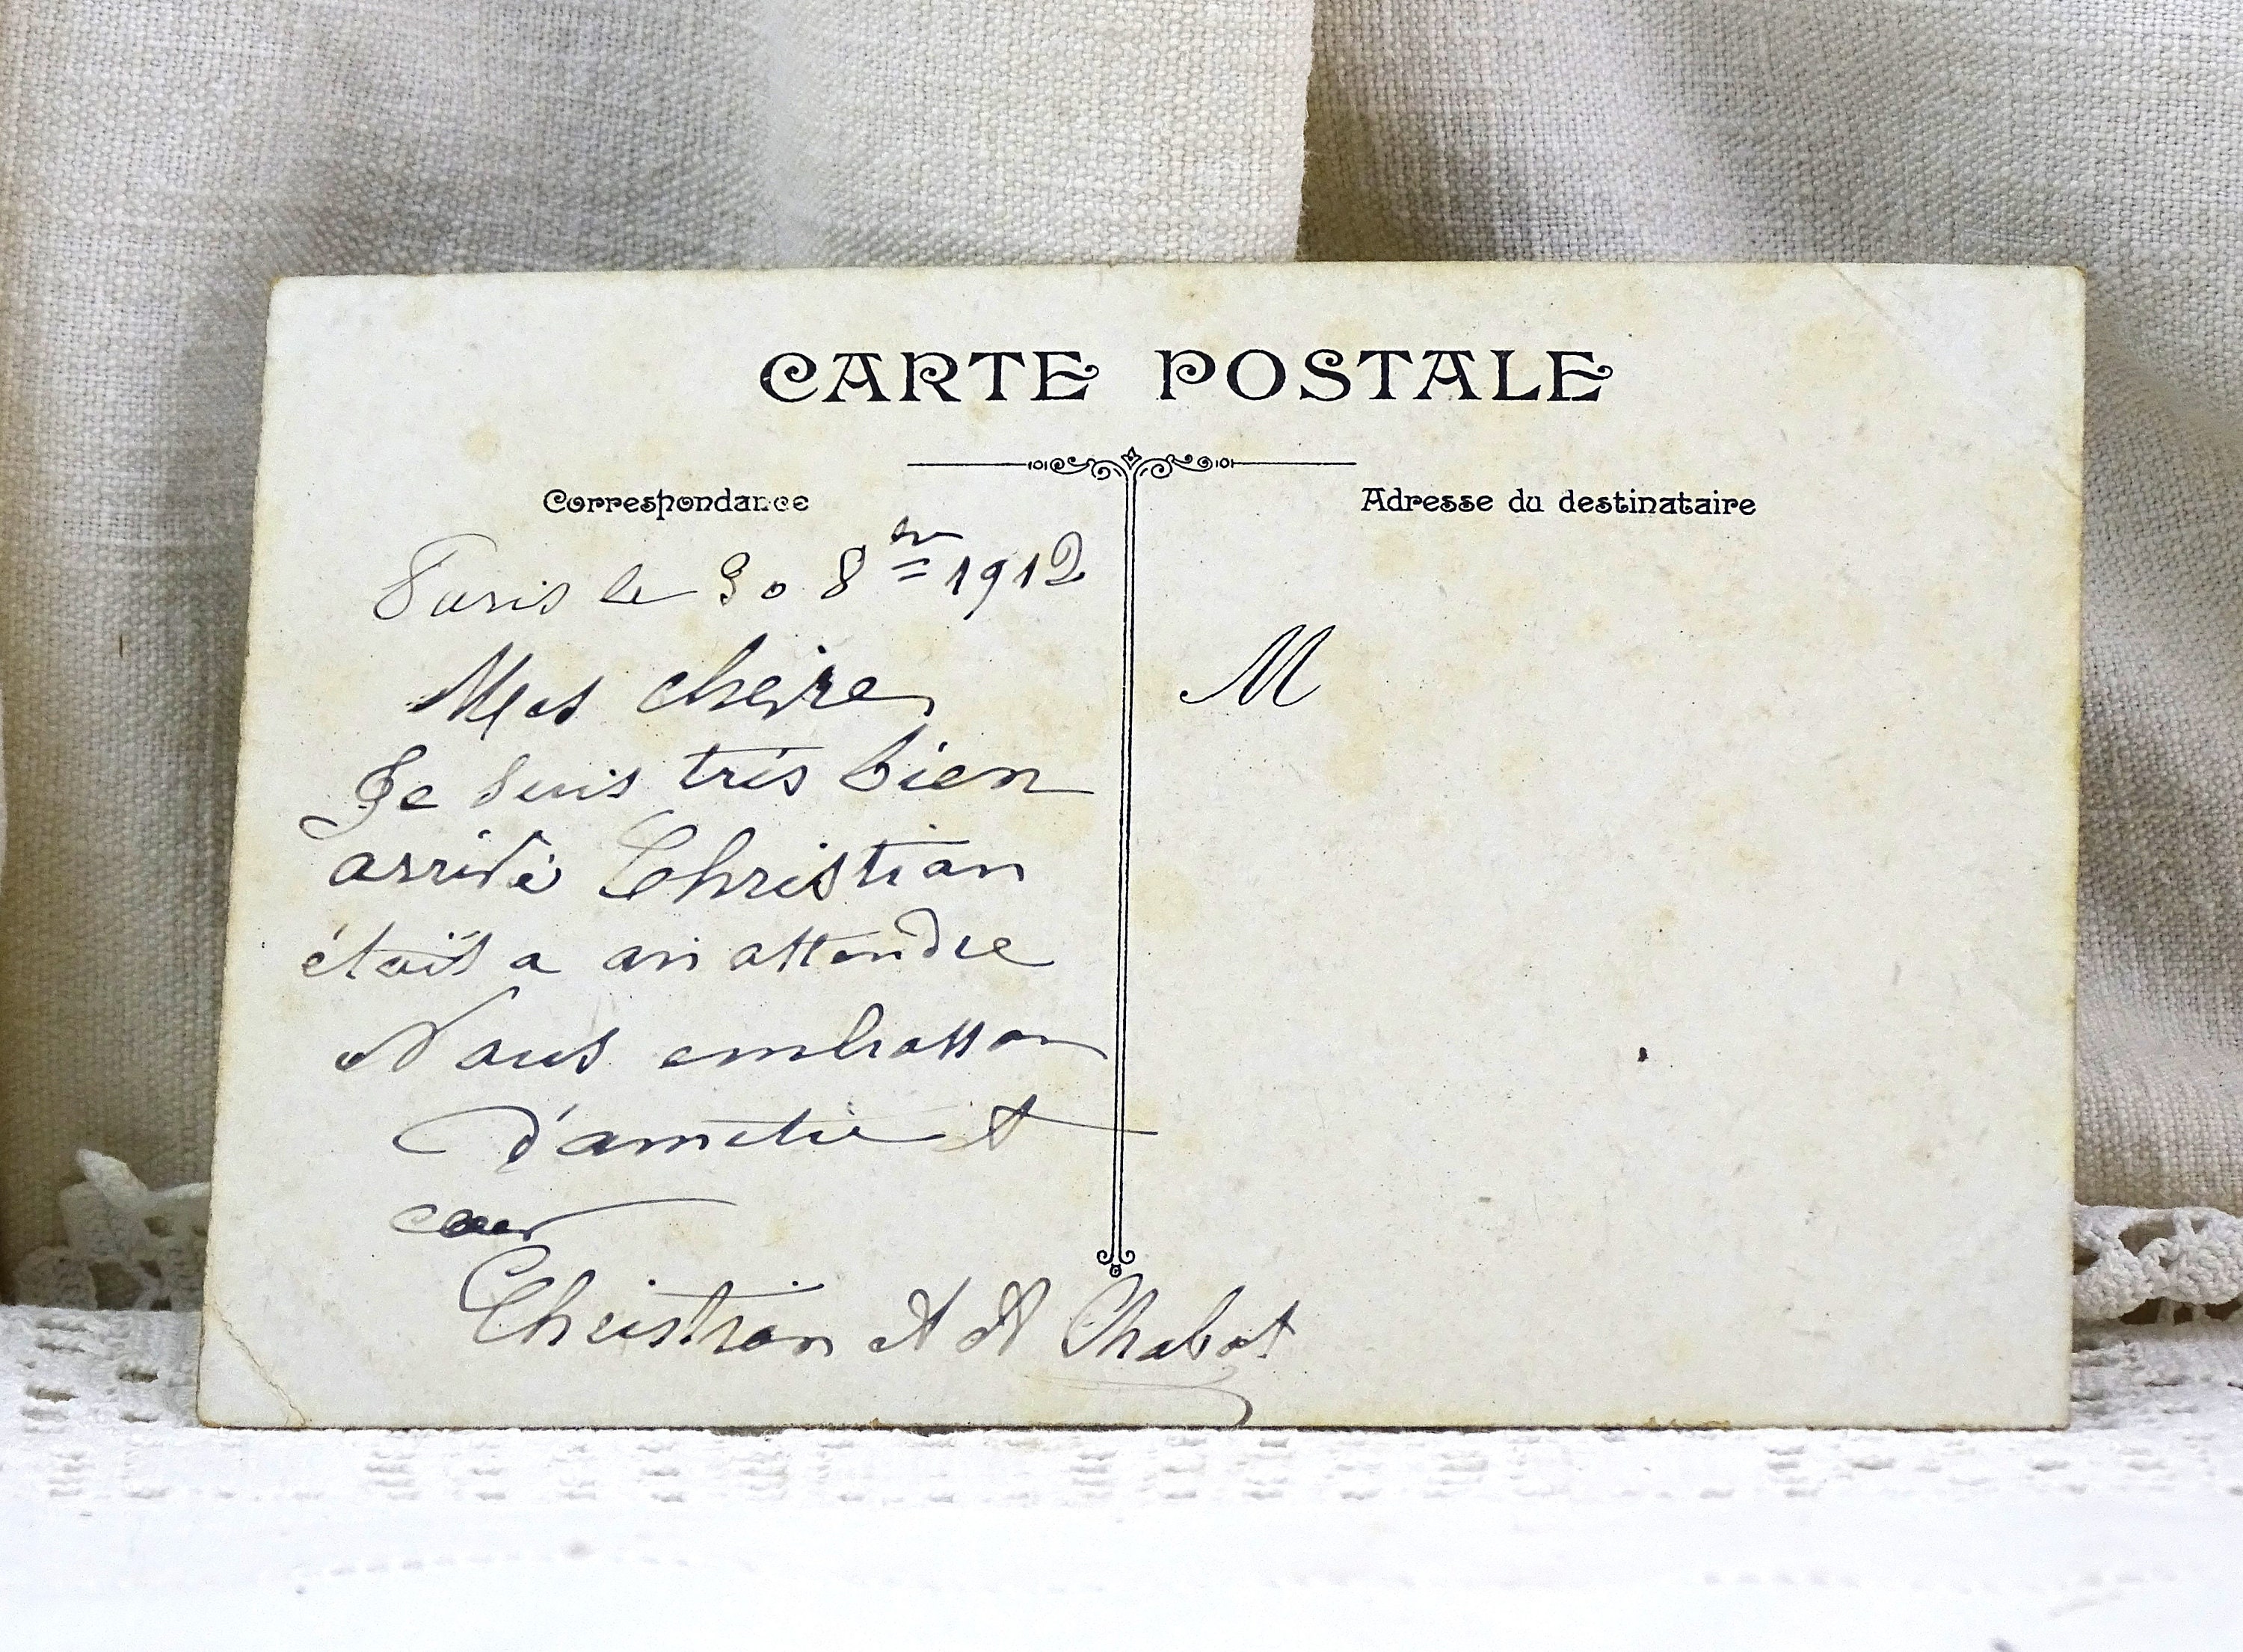 CARTE POSTALE
Correspondance
Adresse du destinataire
Paris le 30 8bre 1912
Mes chère
M
Je suis très bien
arrivé Christian
étais a m attendre
Nous embrasson
d'ametié et
cœur
Christian et A Chabot